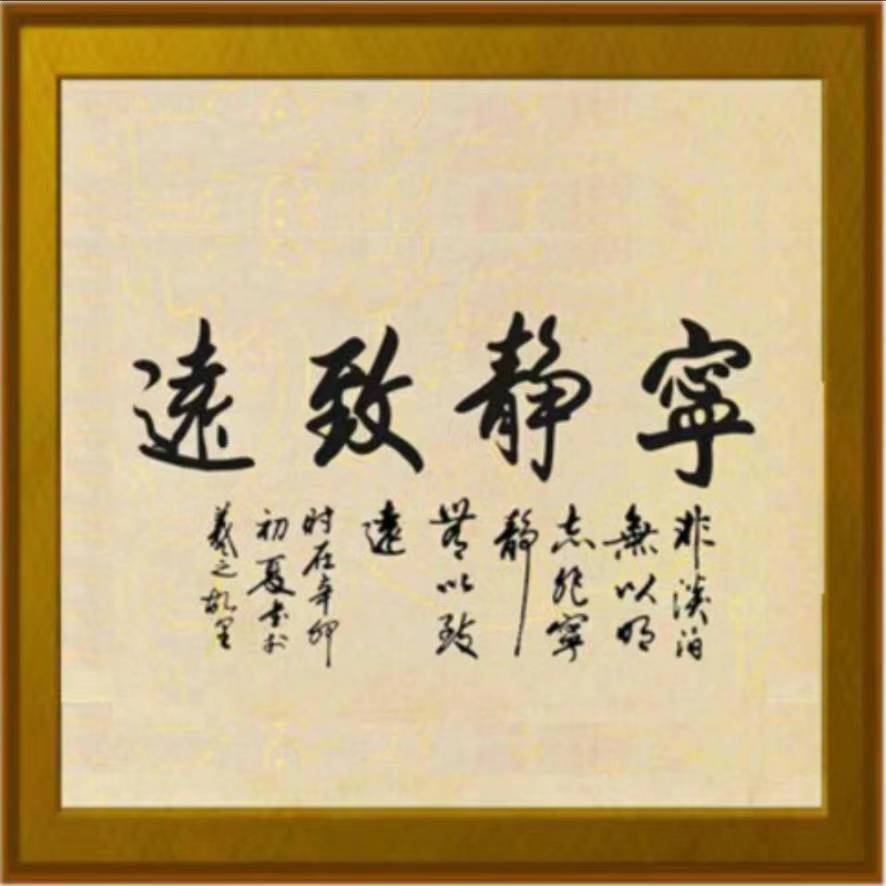 寧静致遠
非淡泊
無以明
志非寧
静
無以致
遠
时在辛卯
初夏書於
羲之故里